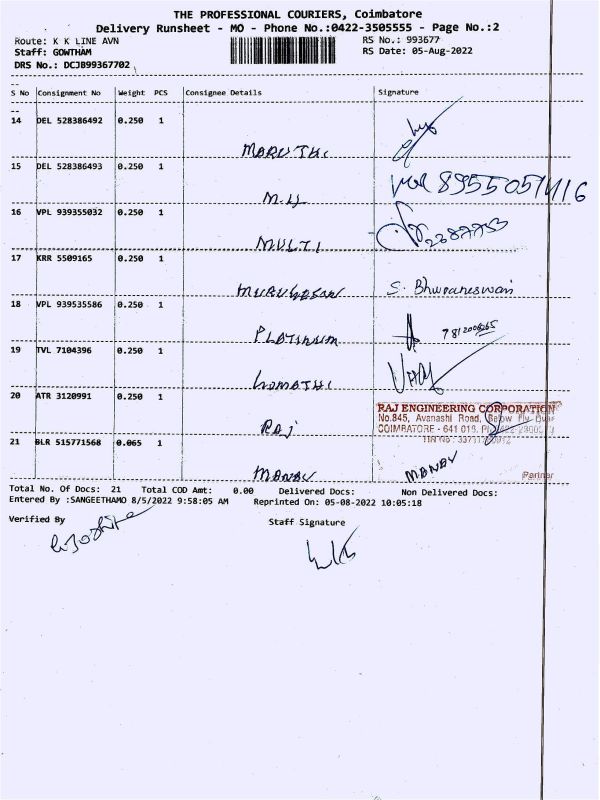 THE PROFESSIONAL COURIERS, Coimbatore
Delivery Runsheet - MO - Phone No.:0422-3505555 - Page No.:2
Route: K K LINE AVN RS No.: 993677
Staff: GOWTHAM RS Date: 05-Aug-2022
DRS No.: DCJB99367702
S No Consignment No Weight PCS Consignee Details Signature
14 DEL 528386492 0.250 1
MARUTHI
15 DEL 528386493 0.250 1
M.Y 8955057416
16 VPL 939355032 0.250 1
MULTI
17 KRR 5509165 0.250 1
MURUGESAN S. Bhuvaneswari
18 VPL 939535586 0.250 1
PLATINUM
19 TVL 7104396 0.250 1
GOMATHI
20 ATR 3120991 0.250 1
RAJ ENGINEERING CORPORATION
No.845, Avanashi Road, Below Fly Over
RAJ COIMBATORE - 641 018.
21 BLR 515771568 0.065 1
MANAV MANAV Partner
Total No. Of Docs: 21 Total COD Amt: 0.00 Delivered Docs: Non Delivered Docs:
Entered By :SANGEETHAMO 8/5/2022 9:58:05 AM Reprinted On: 05-08-2022 10:05:18
Verified By Staff Signature